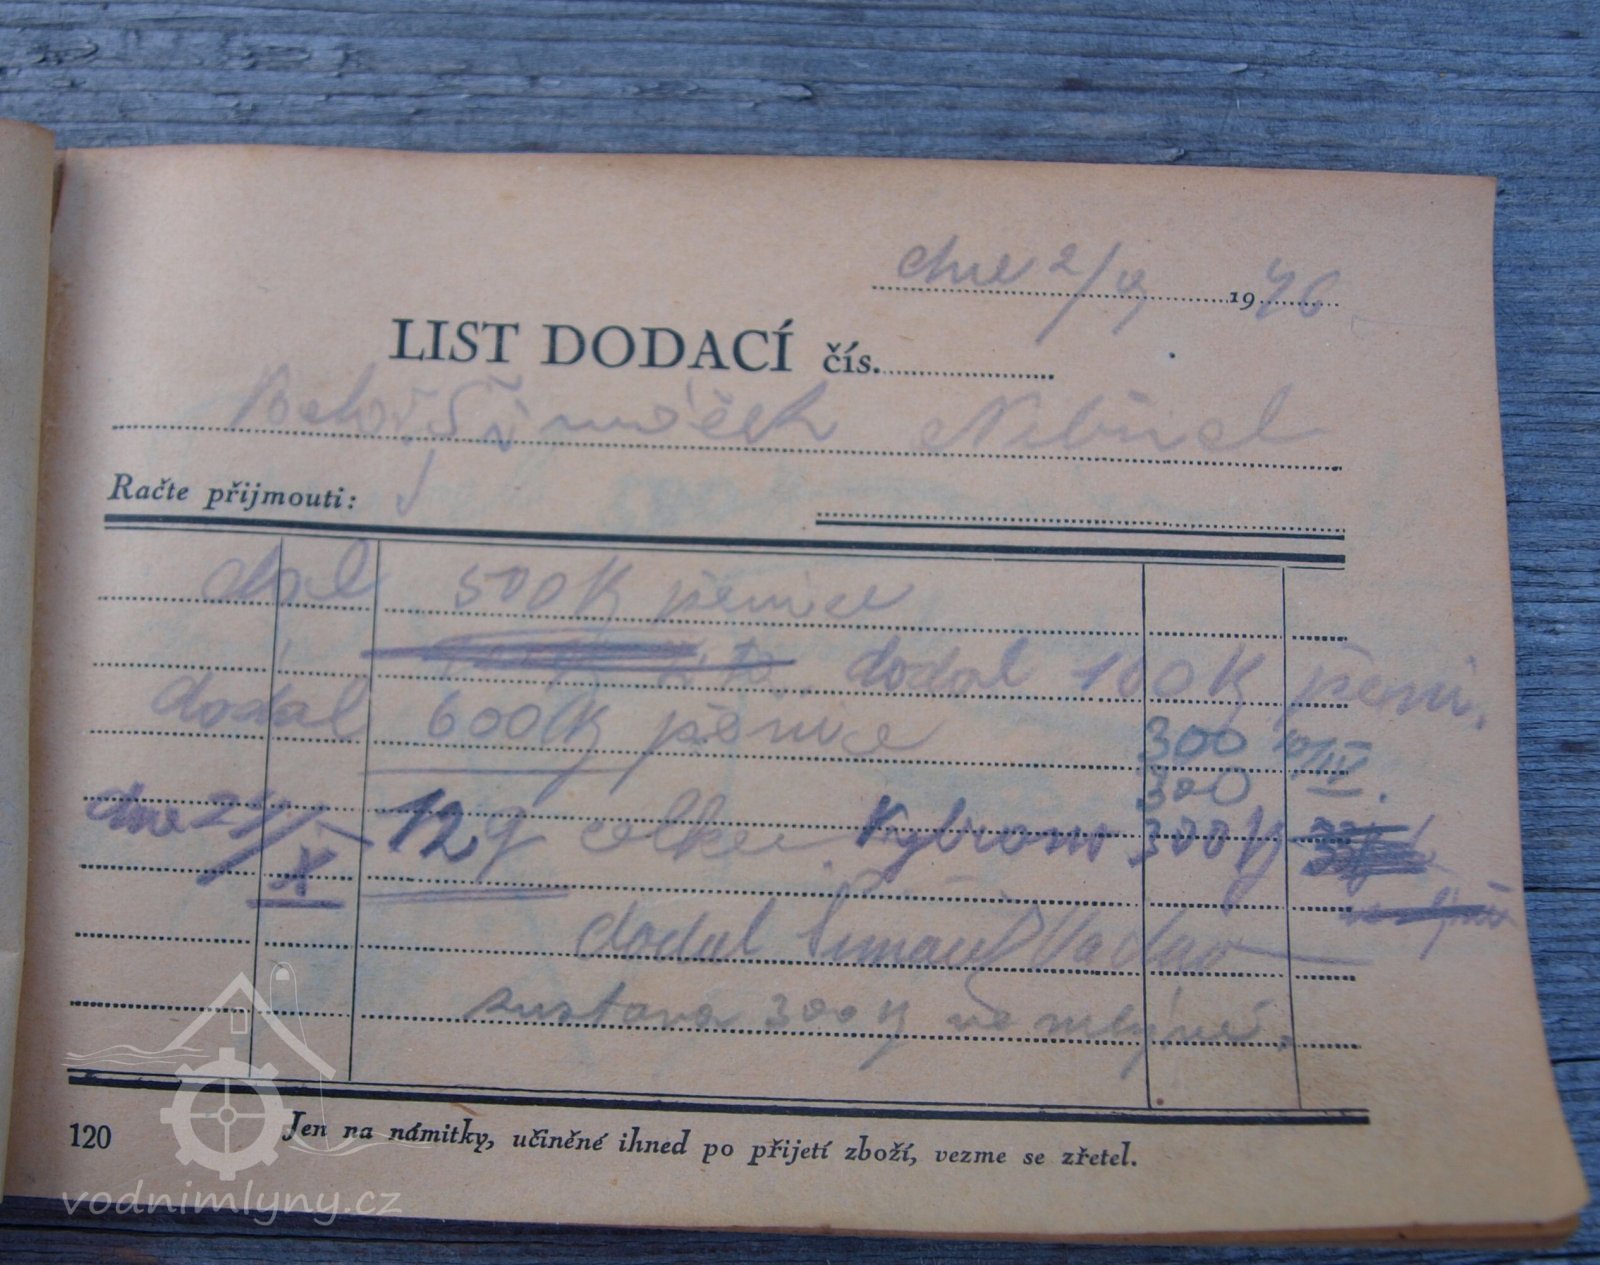 dne 2/9 1946
LIST DODACÍ čís.
Šimáček
Račte přijmouti:
dal 500 K pšenice
dodal 100 K pšeni.
dodal 600 K pšenice 300
300
dne 21/X 12 q celkem Vybrano 300 K
dodal Šimáček Václav
zustava 300 K ve mlýně.
120 Jen na námitky, učiněné ihned po přijetí zboží, vezme se zřetel.
vodnimlyny.cz